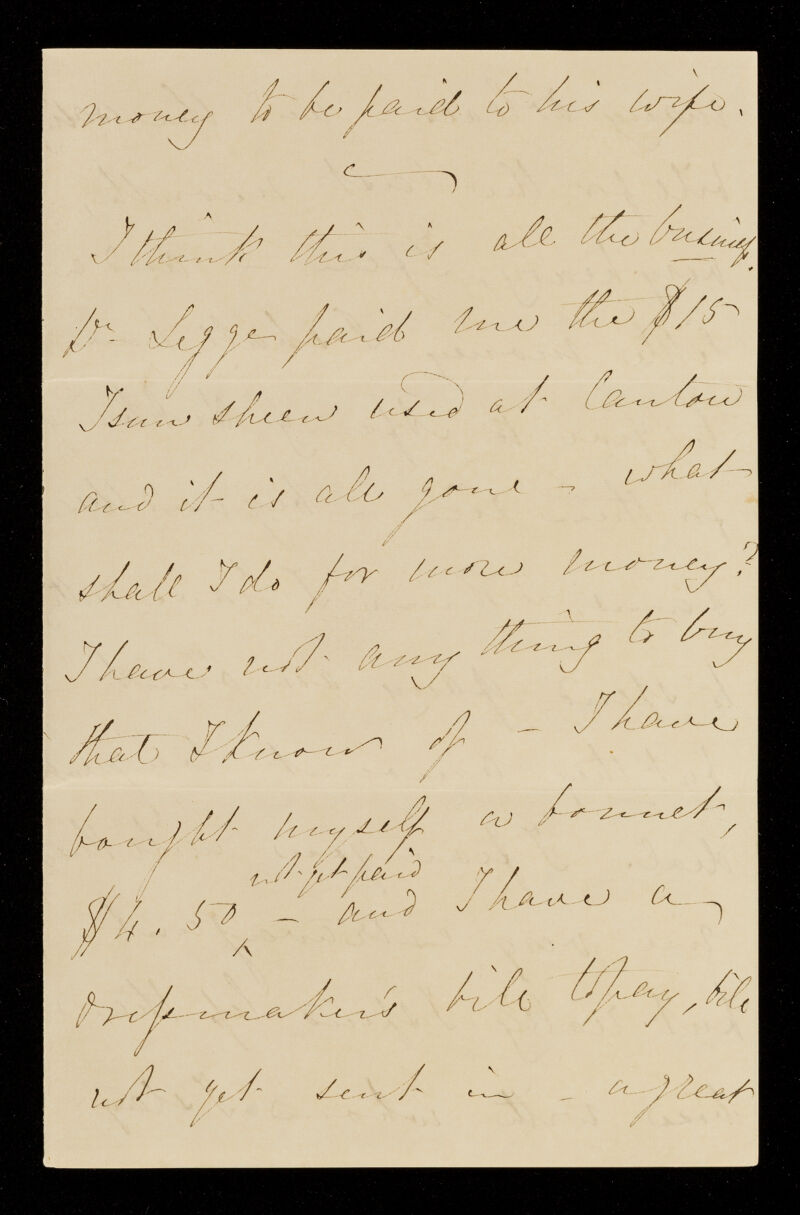 money to be paid to his wife.
I think this is all the business.
Dr. Legge paid me the $15
Tsun sheen used at Canton
and it is all gone - what
shall I do for more money?
I have not any thing to buy
that I know of - I have
bought myself a bonnet,
not yet paid
$4.50 ^ - and I have a
dressmaker's bill to pay, bill
not yet sent in - a great